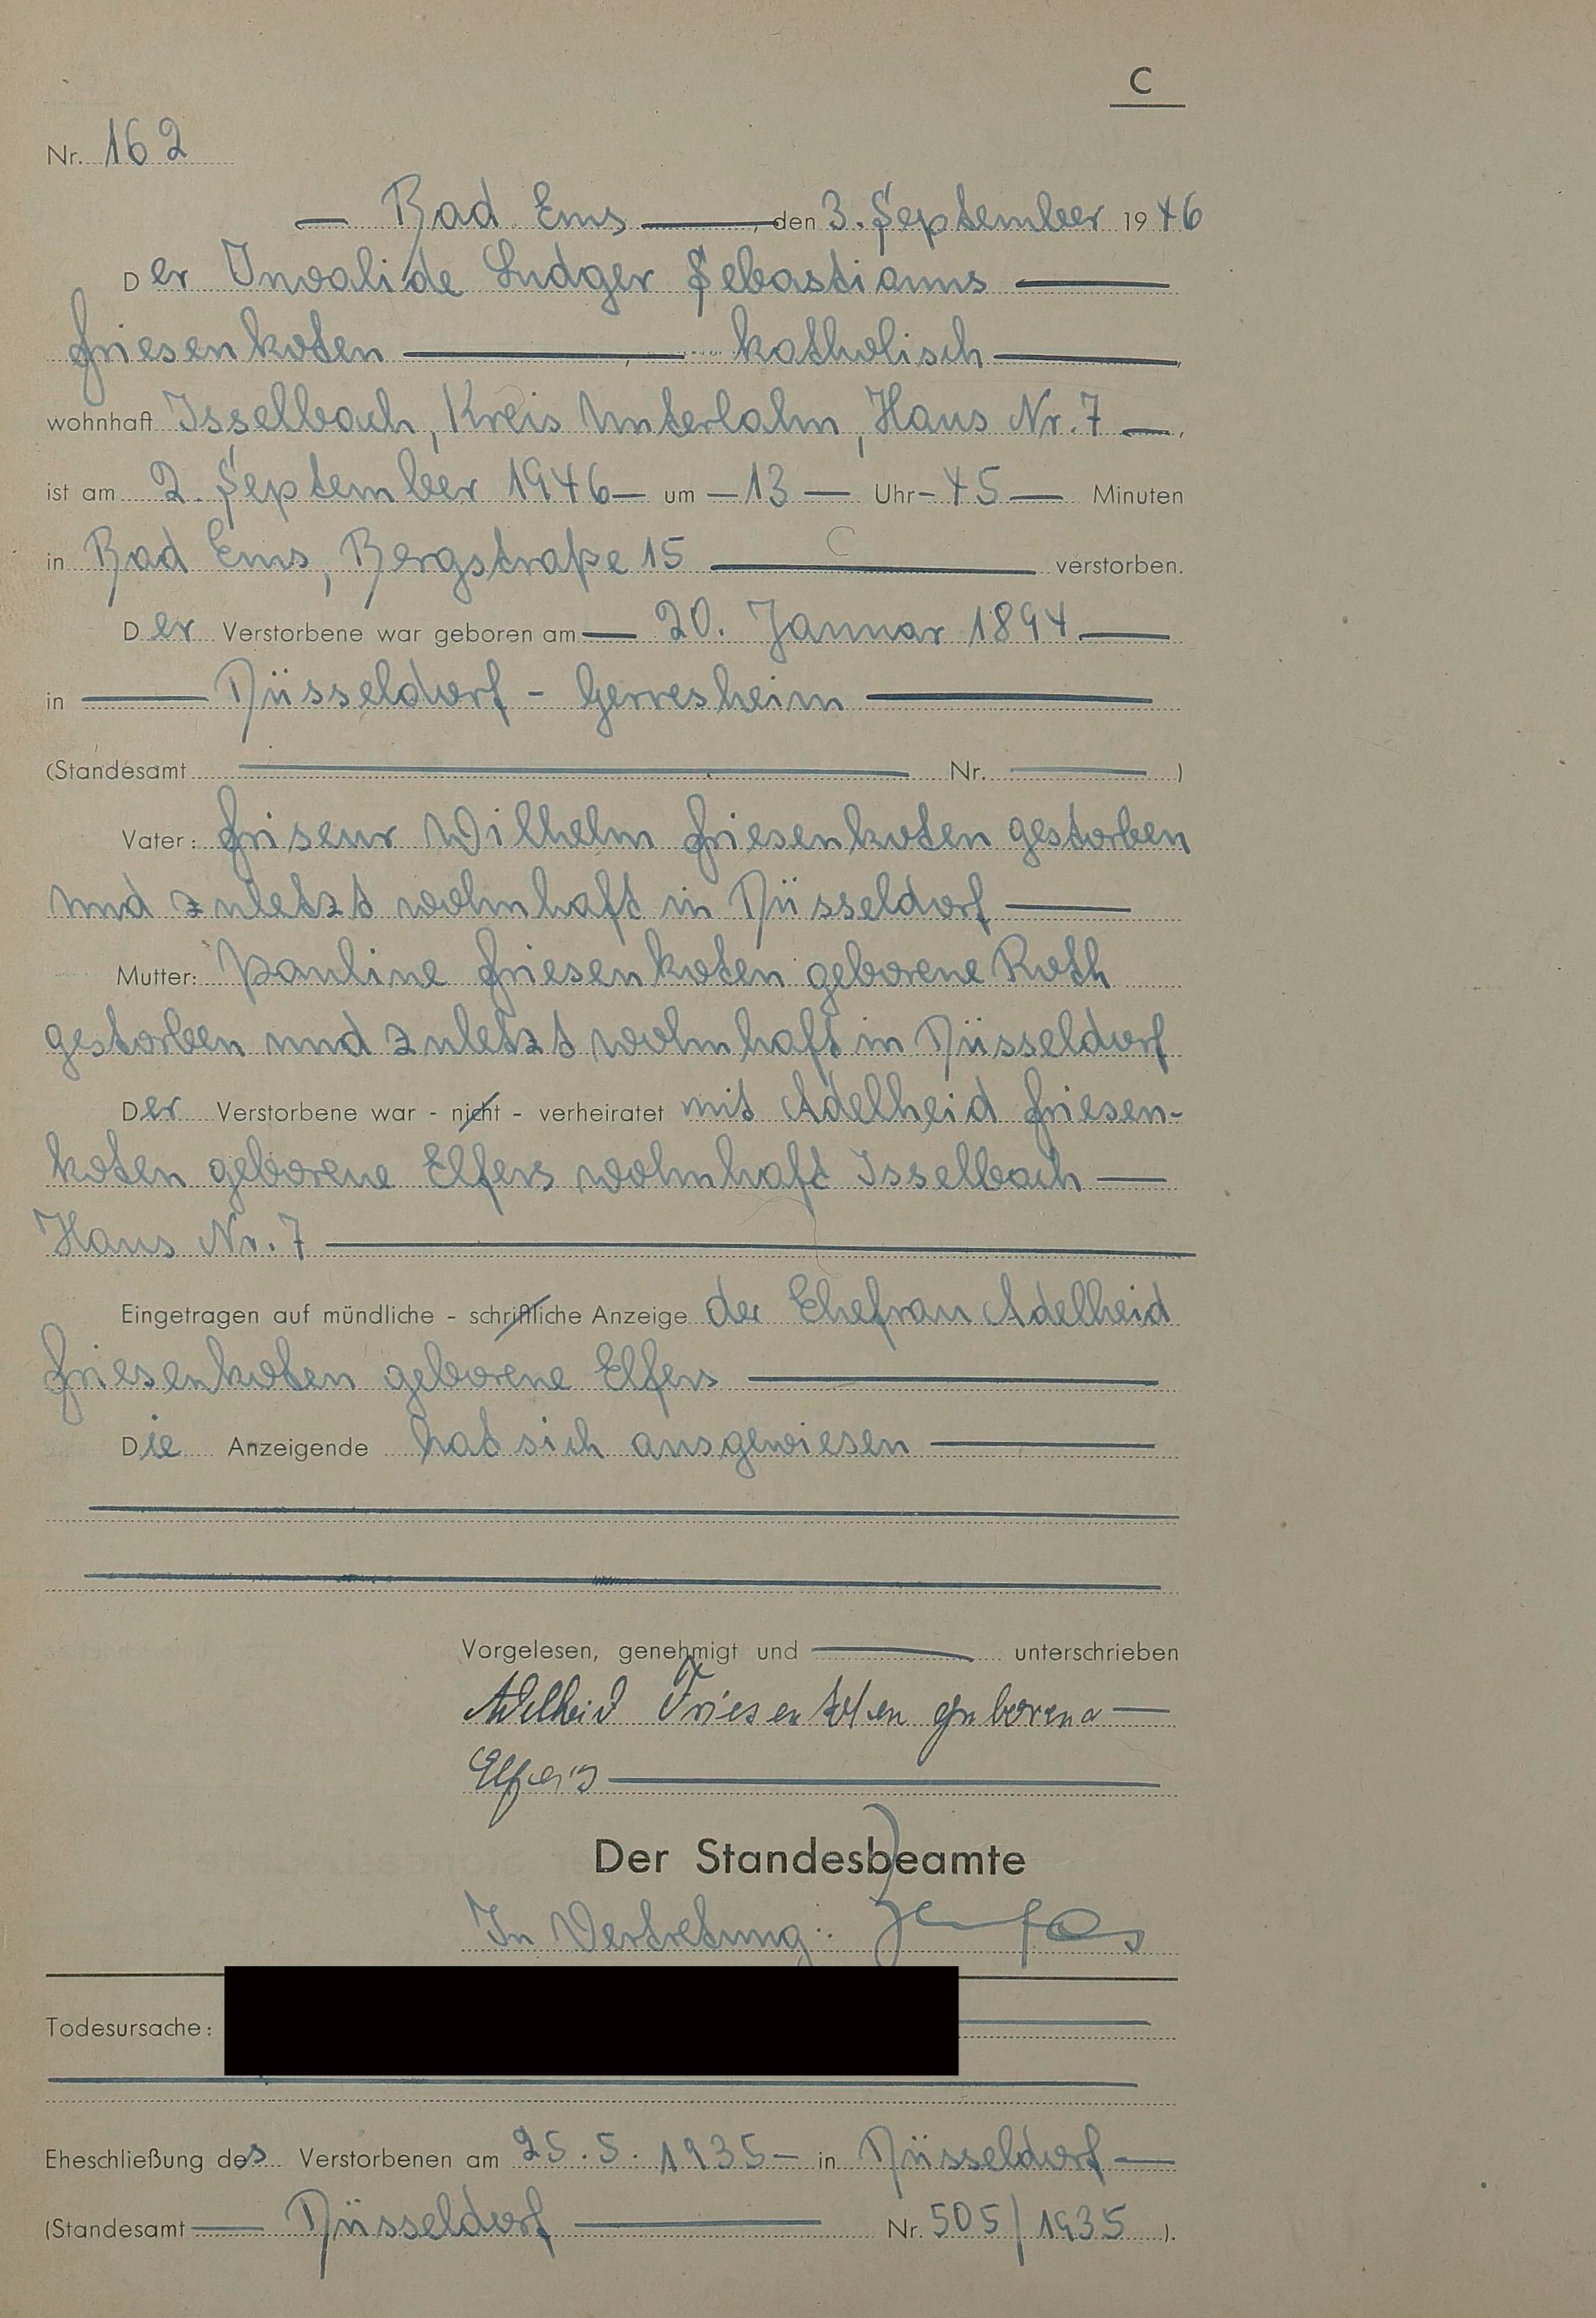 C
Nr. 162
Bad Ems, den 3. September 1946
Der Invalide Ludger Sebastianus
Friesenkoten, katholisch,
wohnhaft Isselbach, Kreis Unterlahn, Haus Nr. 7,
ist am 2. September 1946 um 13 Uhr 45 Minuten
in Bad Ems, Bergstraße 15 verstorben.
Der Verstorbene war geboren am 20. Januar 1894
in Düsseldorf - Gerresheim
(Standesamt Nr. )
Vater: Friseur Wilhelm Friesenkoten gestorben
und zuletzt wohnhaft in Düsseldorf
Mutter: Pauline Friesenkoten geborene Roth
gestorben und zuletzt wohnhaft in Düsseldorf
Der Verstorbene war - nicht - verheiratet mit Adelheid Friesen-
koten geborene Elfers wohnhaft Isselbach
Haus Nr. 7
Eingetragen auf mündliche - schriftliche Anzeige der Ehefrau Adelheid
Friesenkoten geborene Elfers
Die Anzeigende hat sich ausgewiesen
Vorgelesen, genehmigt und unterschrieben
Adelheid Friesenkoten geborene
Elfers
Der Standesbeamte
In Vertretung:
Todesursache:
Eheschließung des Verstorbenen am 25.5.1935 in Düsseldorf
(Standesamt Düsseldorf Nr. 505/1935).